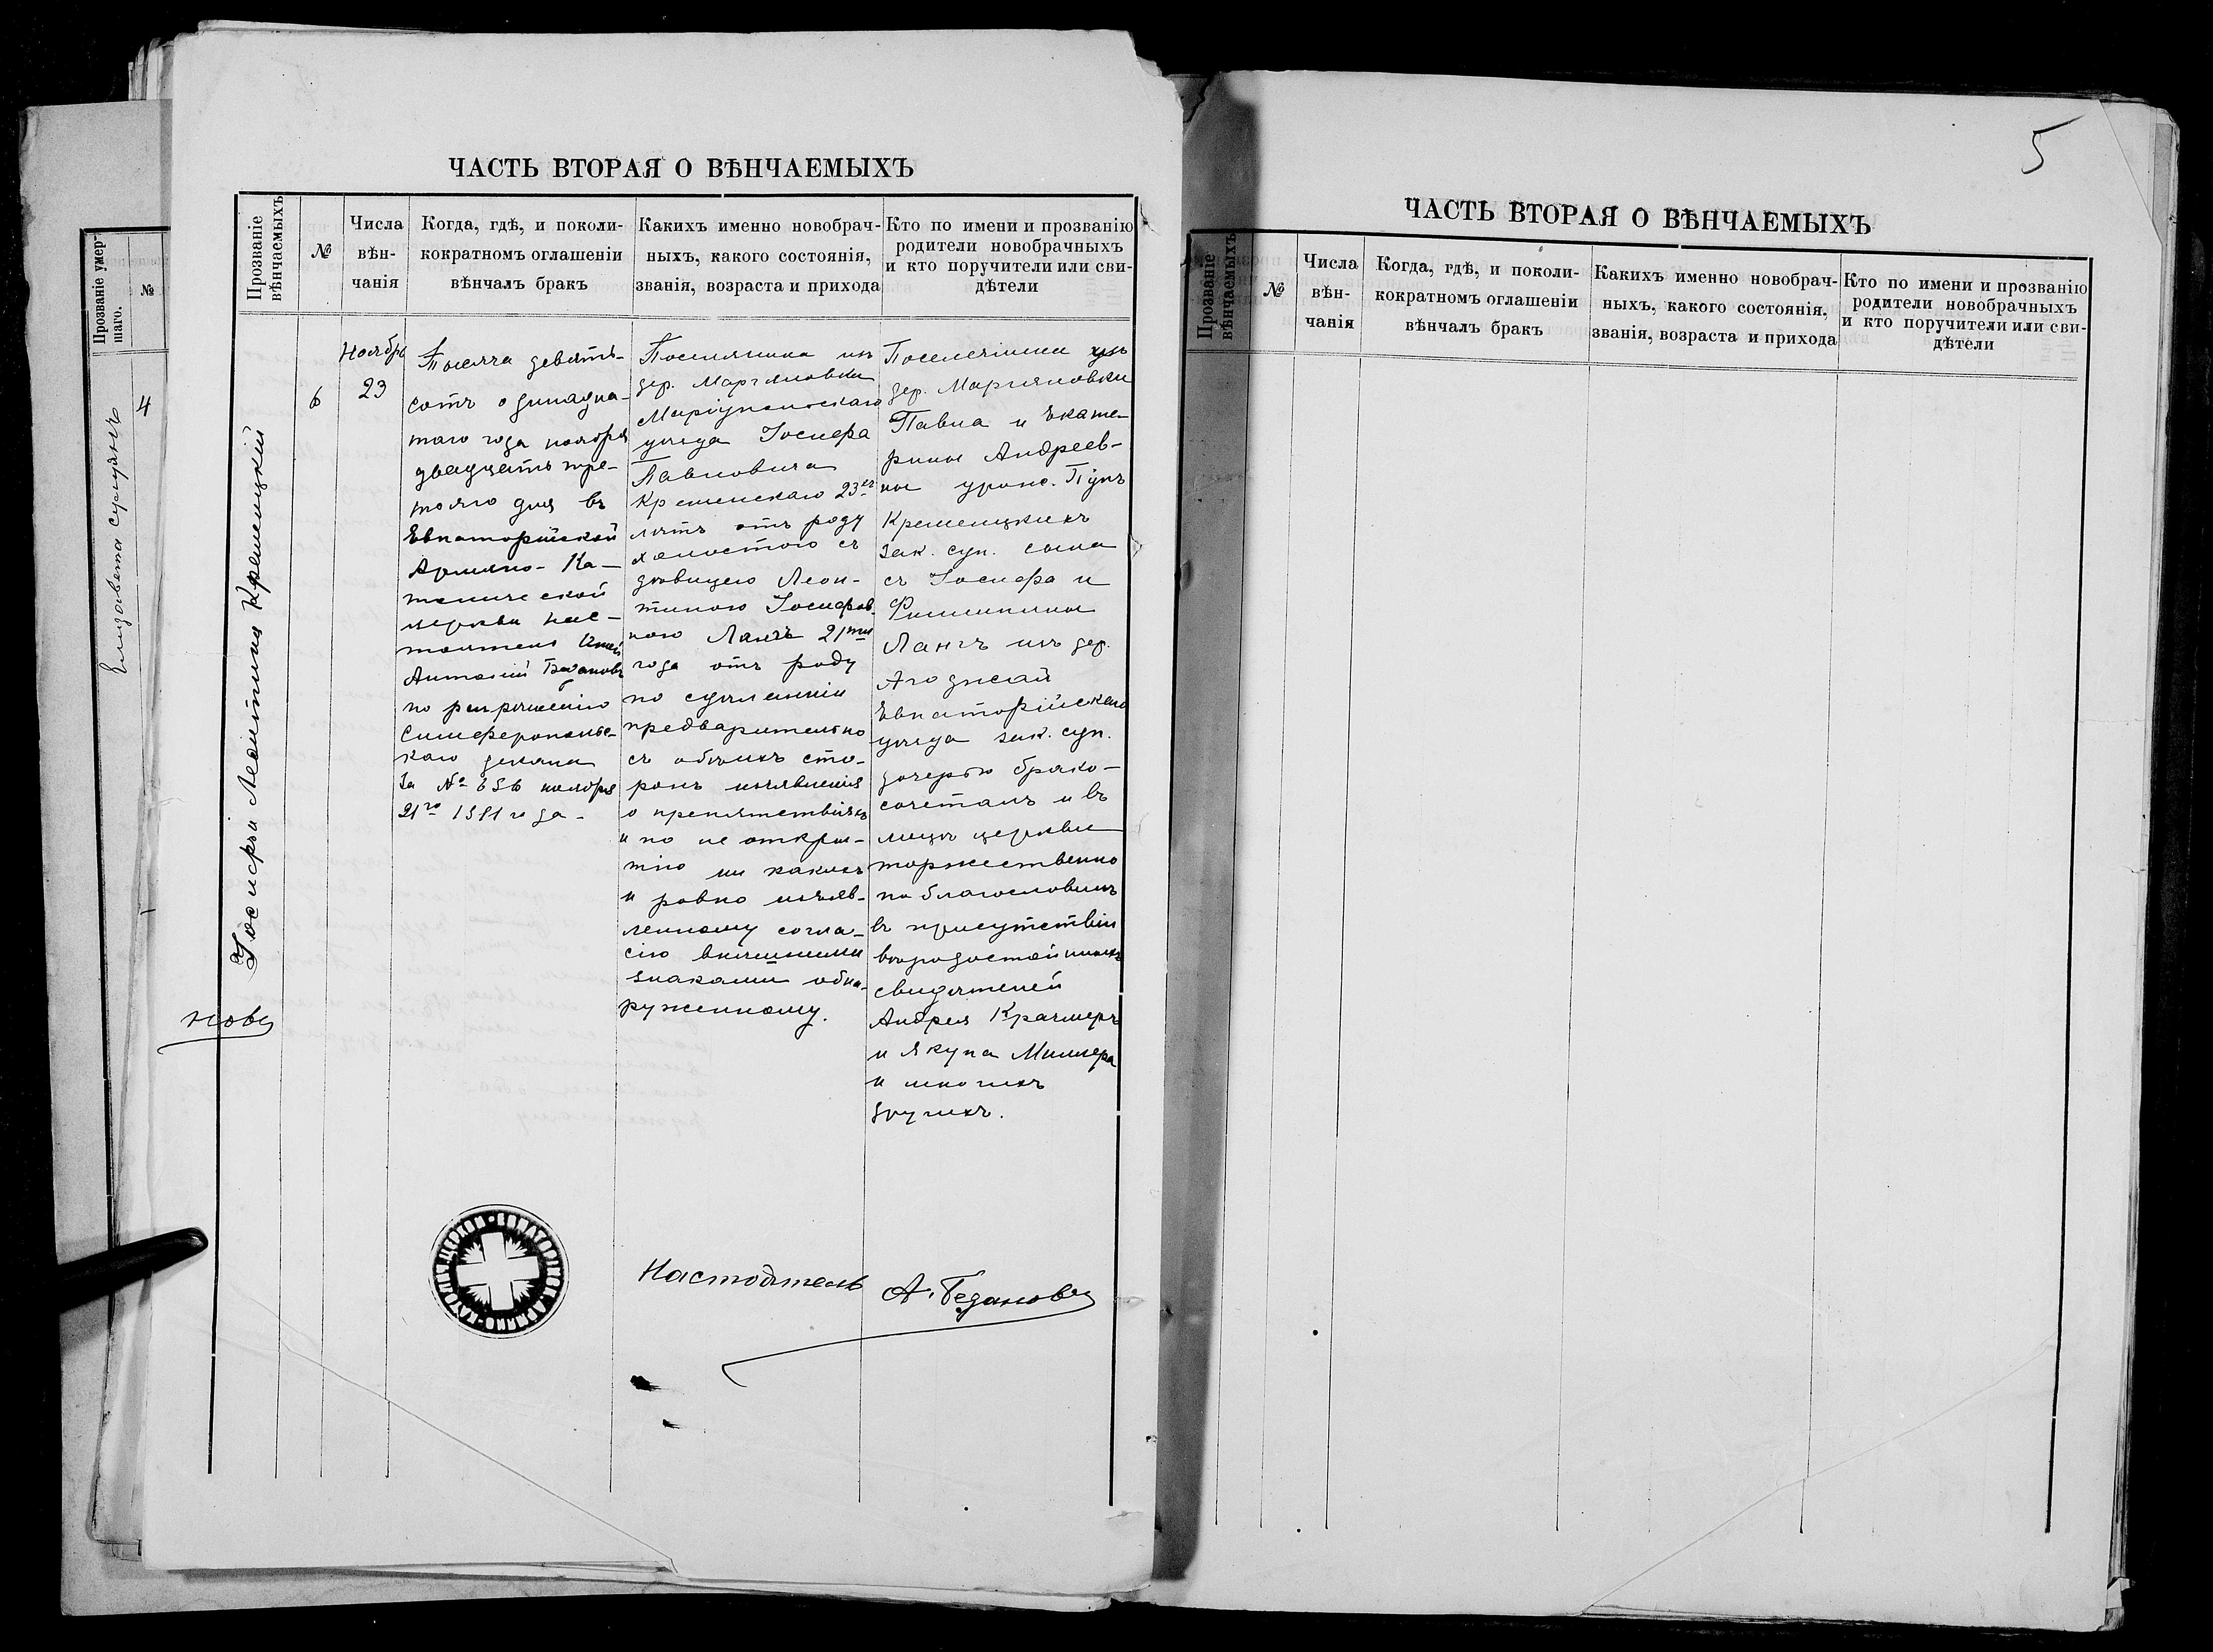 ЧАСТЬ ВТОРАЯ О ВѢНЧАЕМЫХЪ
Прозваніе
вѣнчаемыхъ
№
Числа
вѣн-
чанія
Когда, гдѣ, и поколи-
кократномъ оглашеніи
вѣнчалъ бракъ
Какихъ именно новобрач-
ныхъ, какого состоянія,
званія, возраста и прихода
Кто по имени и прозванію
родители новобрачныхъ
и кто поручители или сви-
дѣтели
Іосифъ и Леонтина Кремецкій
6
Ноябрь
23
Тысяча девять-
сотъ одинадца-
таго года ноября
двадцать тре-
тьяго дня въ
Евпаторійской
Армяно-Ка-
толической
церкви нас-
тоятель
Антоній Бедановъ
по разрѣшенію
Симферопольс-
каго декана
За № 656 ноября
21го 1911 года.
Поселянина изъ
дер. Маріановки
Маріупольскаго
уѣзда Іосифа
Павловича
Кременскаго 23хъ
лѣтъ отъ роду
холостого съ
дѣвицею Леон-
тиною Іосифов-
ною Лангъ 21го
года отъ роду
по сдѣланніи
предварительно
съ обѣихъ сто-
ронъ изъявленія
о препятствіяхъ
и по не откры-
тію ни какихъ
и ровно изъяв-
ленному согла-
сію внѣшними
знаками обна-
руженному.
Поселяніна изъ
дер. Маріяновки
Павла и Екате-
рины Андреев-
ны урожд.
Кремецкихъ
зак. суп. сына
съ Іосифа и
Филипины
Лангъ изъ дер.
Агоджай
Евпаторійскаго
уѣзда зак. суп.
дочерью брако-
сочеталъ и въ
лицѣ церкви
торжественно
поблагословилъ
въ присутствіи
вѣродостойныхъ
свидѣтелей
Андрея Крачмеръ
и Якупа Миллера
и многихъ
другихъ.
Настоятель А. Бедановъ
Прозваніе умер-
шаго.
№
4
Елизавета
5
ЧАСТЬ ВТОРАЯ О ВѢНЧАЕМЫХЪ
Прозваніе
вѣнчаемыхъ
№
Числа
вѣн-
чанія
Когда, гдѣ, и поколи-
кократномъ оглашеніи
вѣнчалъ бракъ
Какихъ именно новобрач-
ныхъ, какого состоянія,
званія, возраста и прихода
Кто по имени и прозванію
родители новобрачныхъ
и кто поручители или сви-
дѣтели